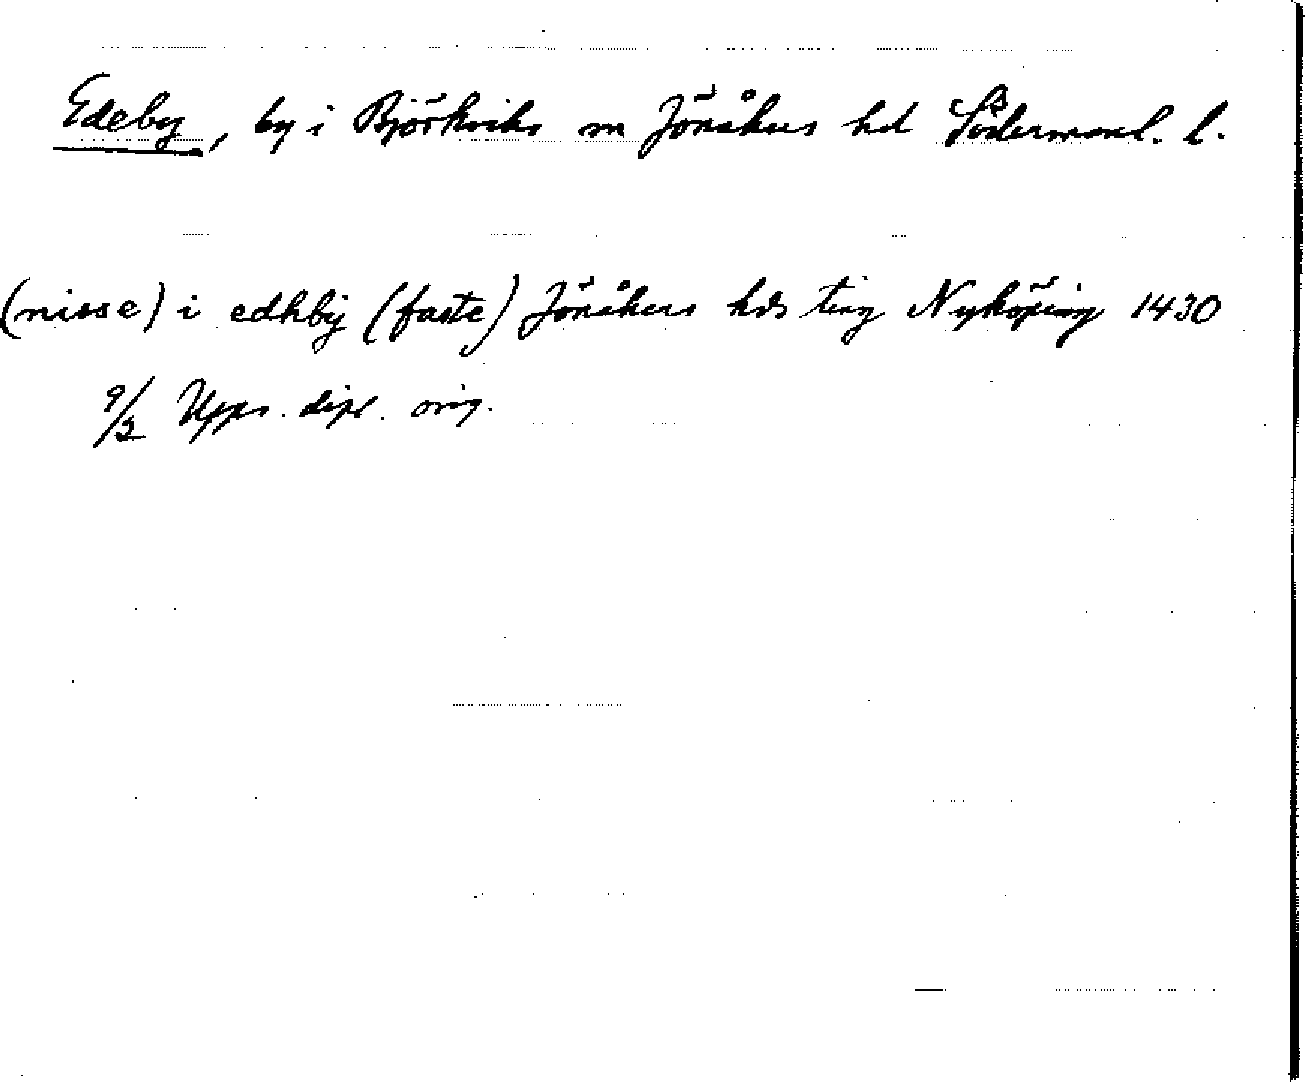 Edeby, by i Björkviks sn Jönåkers hd Södermanl. l.
(nisse) i edhby (faste) Jönåkers hds ting Nyköping 1430
9/2 Upps. dipl. orig.